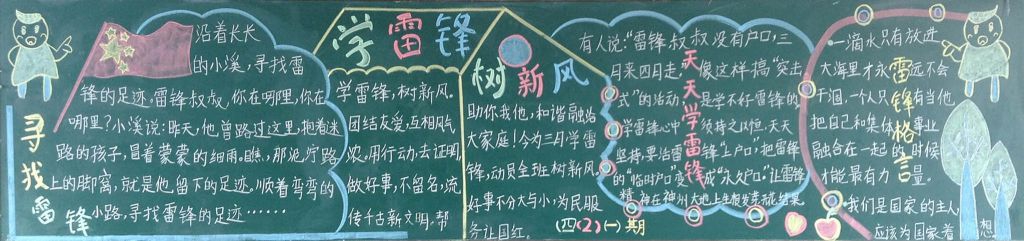 寻找雷锋
沿着长长
的小溪，寻找雷
锋的足迹。雷锋叔叔，你在哪里，你在
哪里？小溪说：昨天，他曾路过这里，抱着迷
路的孩子，冒着蒙蒙的细雨。瞧，那泥泞路
上的脚窝，就是他留下的足迹。顺着弯弯的
小路，寻找雷锋的足迹……
学雷锋
树新风
学雷锋，树新风。
团结友爱，互相风气
浓。用行动，去证明，
做好事，不留名，流
传千古新文明。帮
助你我他，和谐融洽
大家庭！今为三月学雷
锋，动员全班树新风。
好事不分大与小，为民服
务让国红。
(四(2)(一)期
天天学雷锋
有人说：“雷锋叔叔没有户口，三
月来四月走。”像这样搞“突击
式”的活动，是学不好雷锋的
学雷锋心中须持之以恒，天天
坚持，要治雷锋“上户口”，把雷锋
的“临时户口”变成“永久户口”，让雷锋
精神在神州大地上生根发芽
雷锋格言
一滴水只有放进
大海里才永远不会
干涸，一个人只有当他
把自己和集体事业
融合在一起的时候
才能最有力量。
我们是国家的主人，
应该为国家着想